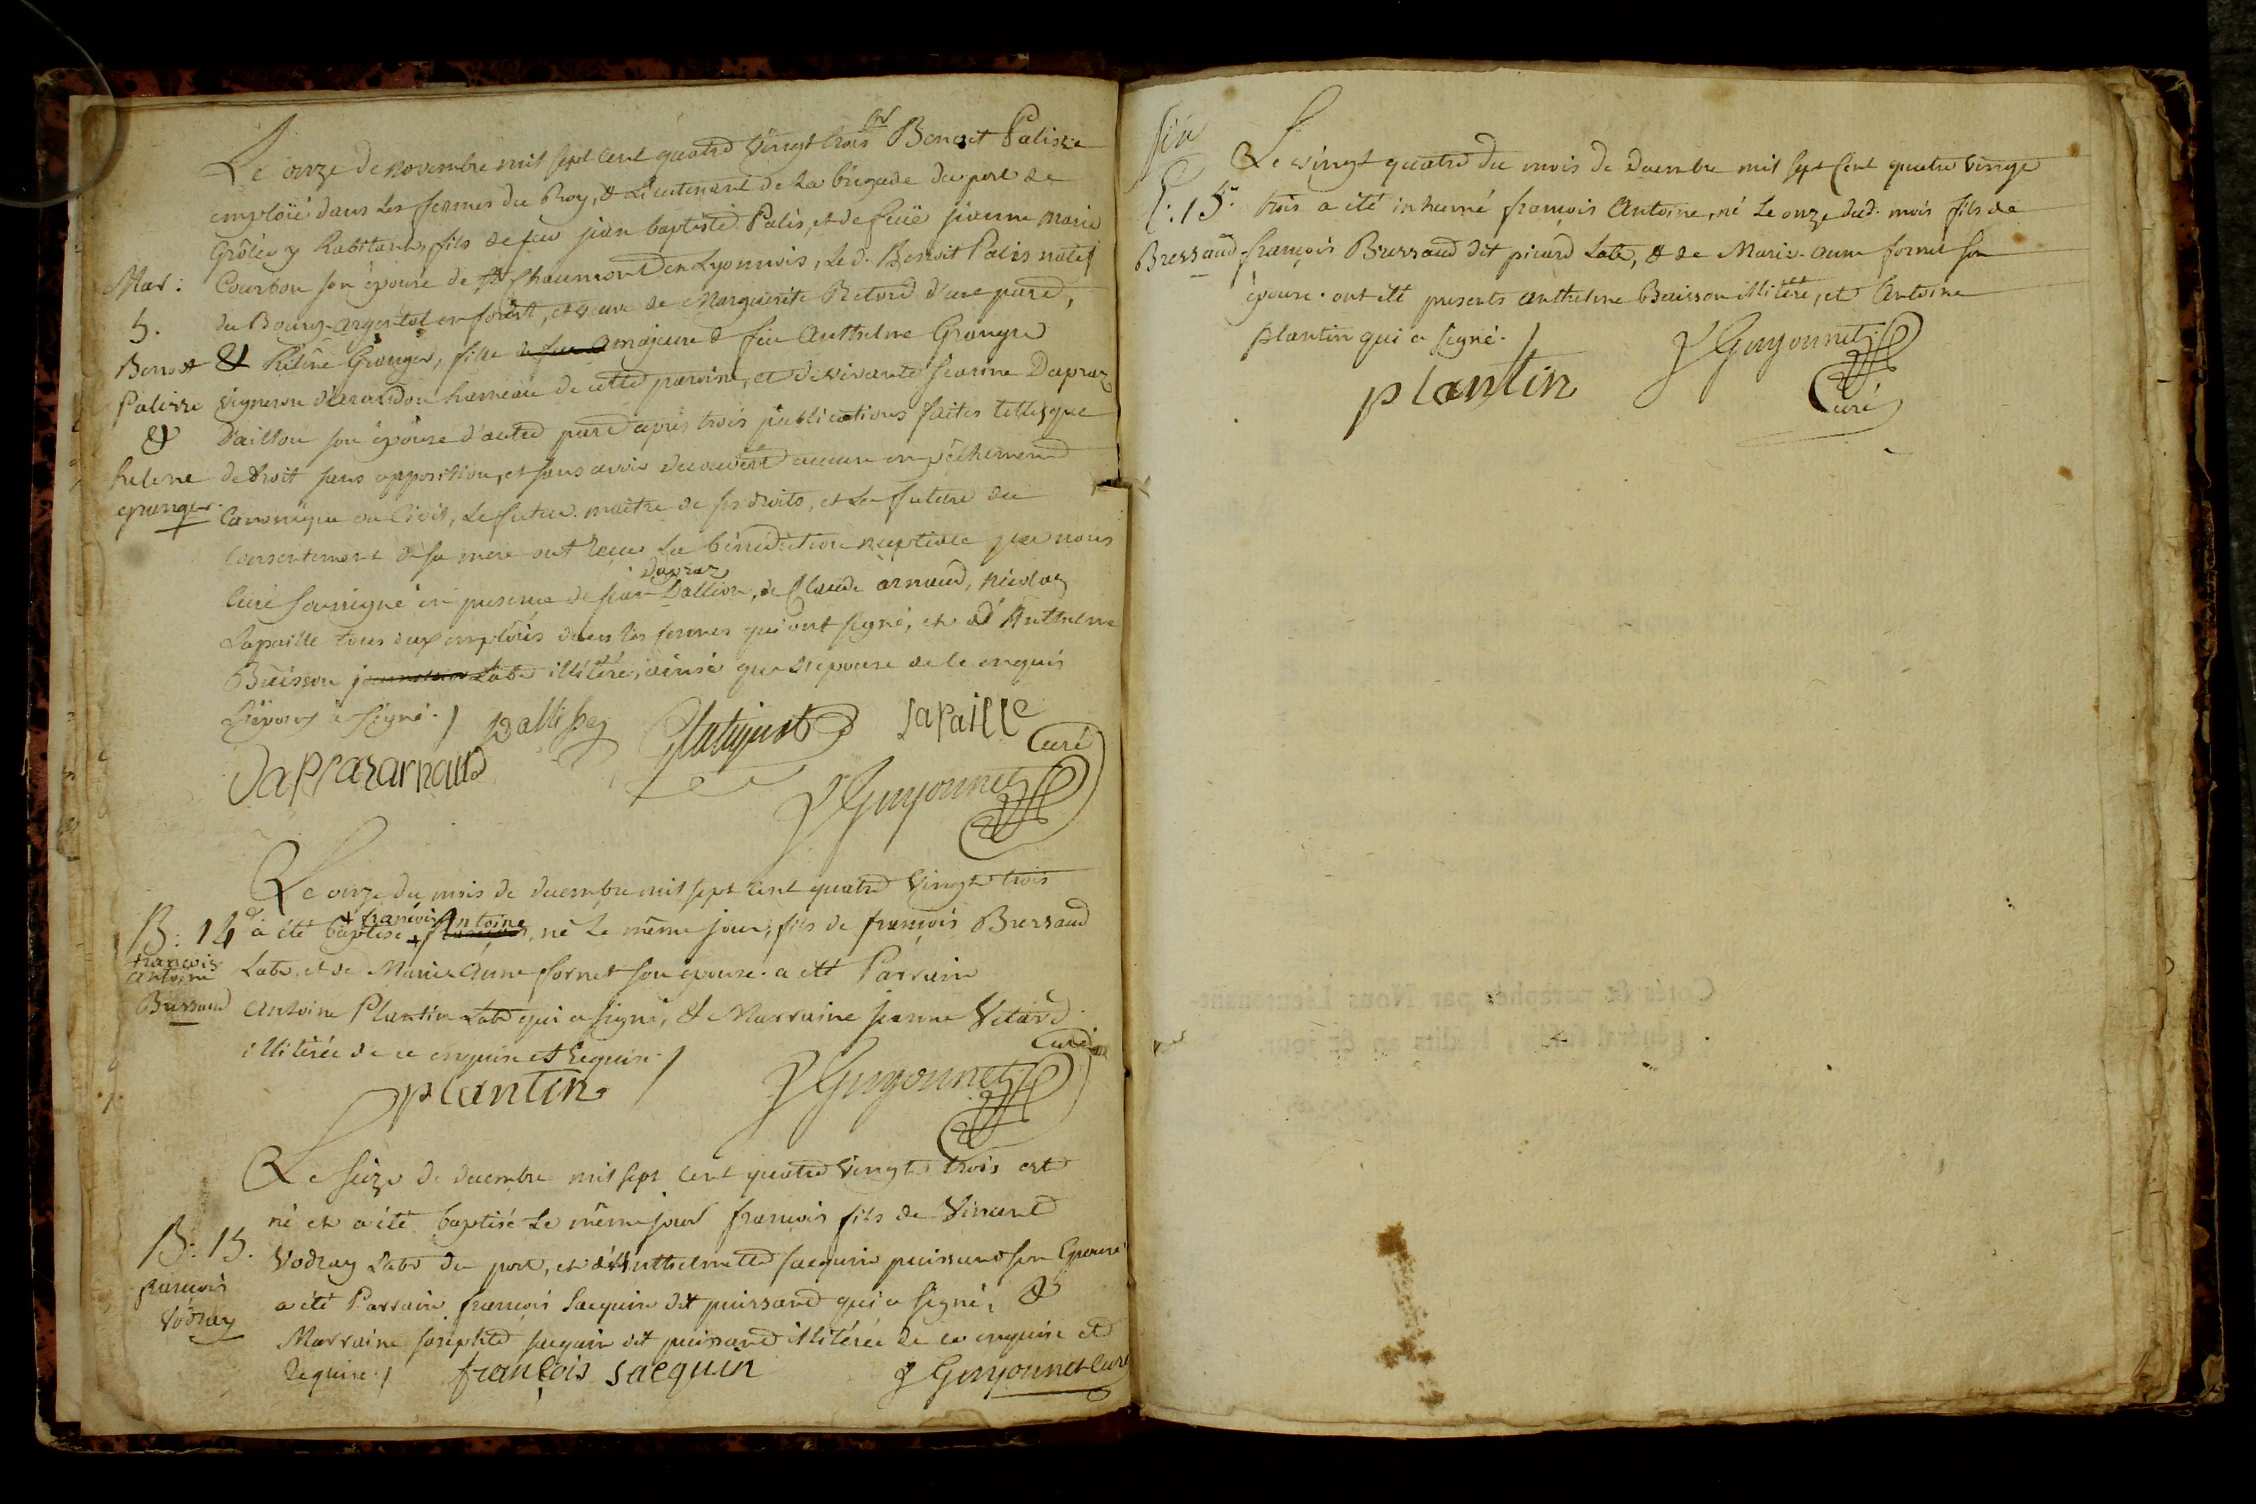 Le onze de novembre mil sept cent quatre vingt trois Sr Benoit Palisse
emploïé dans les fermes du Roy, & Lieutenant de la brigade du port de
Grôlée y habitant, fils de feu jean baptiste Palis, et de feüe jeanne marie
Courbon son épouse de St Chaumont en Lyonnois, Le d. Benoit Palis natif
du Bourg-argental en forest, et veuve de Marguerite Retord d'une part,
& helêne Granger, fille majeure d feu Anthelme Granger
vigneron hameau de cette paroisse, et de vivante jeanne Dapraz
Daillon son épouse d'autre part après trois publications faites telles que
de droit sans opposition, et sans avoir découvert aucun empêchement
Canonique ou Civil, Le futur maître de ses droits, et La future du
Consentement de sa mere ont reçu La bénédiction nuptiale par nous
Curé soussigné en presence de jean Dapraz Dallion, de Claude arnaud, nicolas
Lapaille tous deux emploïés dans les fermes qui ont signé, et d'Anthelme
Buisson Labr illitéré, ainsi que L'épouse de ce enquis
L'époux a signé./
Mar:
5.
Benoit
Palisse
&
helene
granger
pallisse
Lapaille
Dapraz arnaud
Guyonnet Curé
Le onze du mois de decembre mil sept cent quatre vingt trois
a été baptisé + françois Antoine, né Le même jour, fils de françois Bressaud
Labr, et de Marie Anne fornet son épouse. a été Parrain
Antoine Plantin Labr qui a signé, & Marraine jeanne Vetard
illitérée de ce enquise et Requise./
B: 14
françois
antoine
Bressaud
plantin
Guyonnet Curé
Le seize de decembre mil sept cent quatre vingt trois est
né et a été baptisé Le même jour françois fils de Vincent
Vodray Labr du port, et d'Anthelmette jacquin puissant son Epouse
a été Parrain françois Jacquin dit puissand qui a signé, &
Marraine josephte jacquin dit puissand illitérée de ce enquise et
Requise./
B: 15.
françois
Vodray
françois Jacquin
Guyonnet Curé
Le vingt quatre du mois de decembre mil sept Cent quatre vingt
trois a été inhumé françois Antoine, né Le onze dud. mois fils de
françois Bressaud dit picard Labr, & de Marie-anne fornet son
épouse. ont été presents anthelme Buisson illitéré, et Antoine
plantin qui a signé./
S: 15.
Bressaud
plantin
Guyonnet
Curé